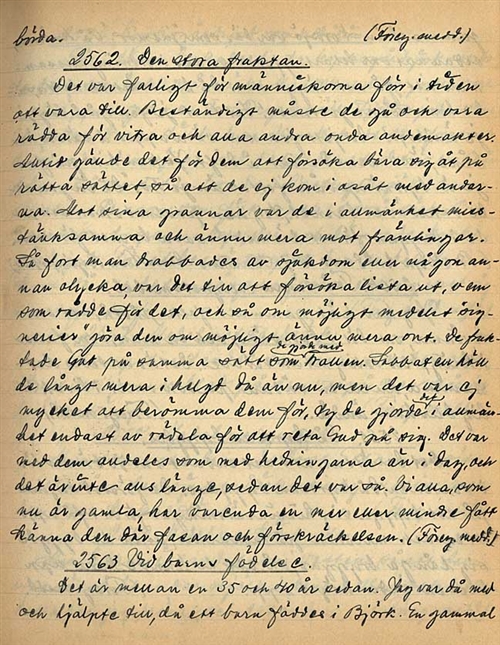 börda. (Föreg. medd.)
2562. Den stora fruktan.
Det var farligt för människorna förr i tiden
att vara till. Beständigt måste de gå och vara
rädda för vitra och alla andra onda andemakter.
Alltid gällde det för dem att försöka bära sig åt på
rätta sättet, så att de ej kom i osåt med andar-
na. Mot sina grannar var de i allmänhet miss-
tänksamma och ännu mera mot främlingar.
Så fort man drabbades av sjukdom eller någon an-
nan olycka, var det till att försöka lista ut, vem
som rådde för det, och så om möjligt medelst "sig-
nerier" göra den om möjligt ännu mera ont. De fruk-
tade Gud på samma sätt som de gjorde med trollen. Sabbaten höll
de långt mera i helgd då än nu, men det var ej
mycket att berömma dem för, ty de gjorde det i allmän-
het endast av rädsla för att reta Gud på sig. Det var
med dem alldeles som med hedningarna än i dag, och
det är inte alls länge, sedan det var så. Vi alla, som
nu är gamla, har varenda en mer eller mindre fått
känna den där fasan och förskräckelsen. (Föreg. medd.)
2563 Vid barns födelse.
Det är mellan en 35 och 40 år sedan. Jag var då med
och hjälpte till, då ett barn föddes i Björk. En gammal